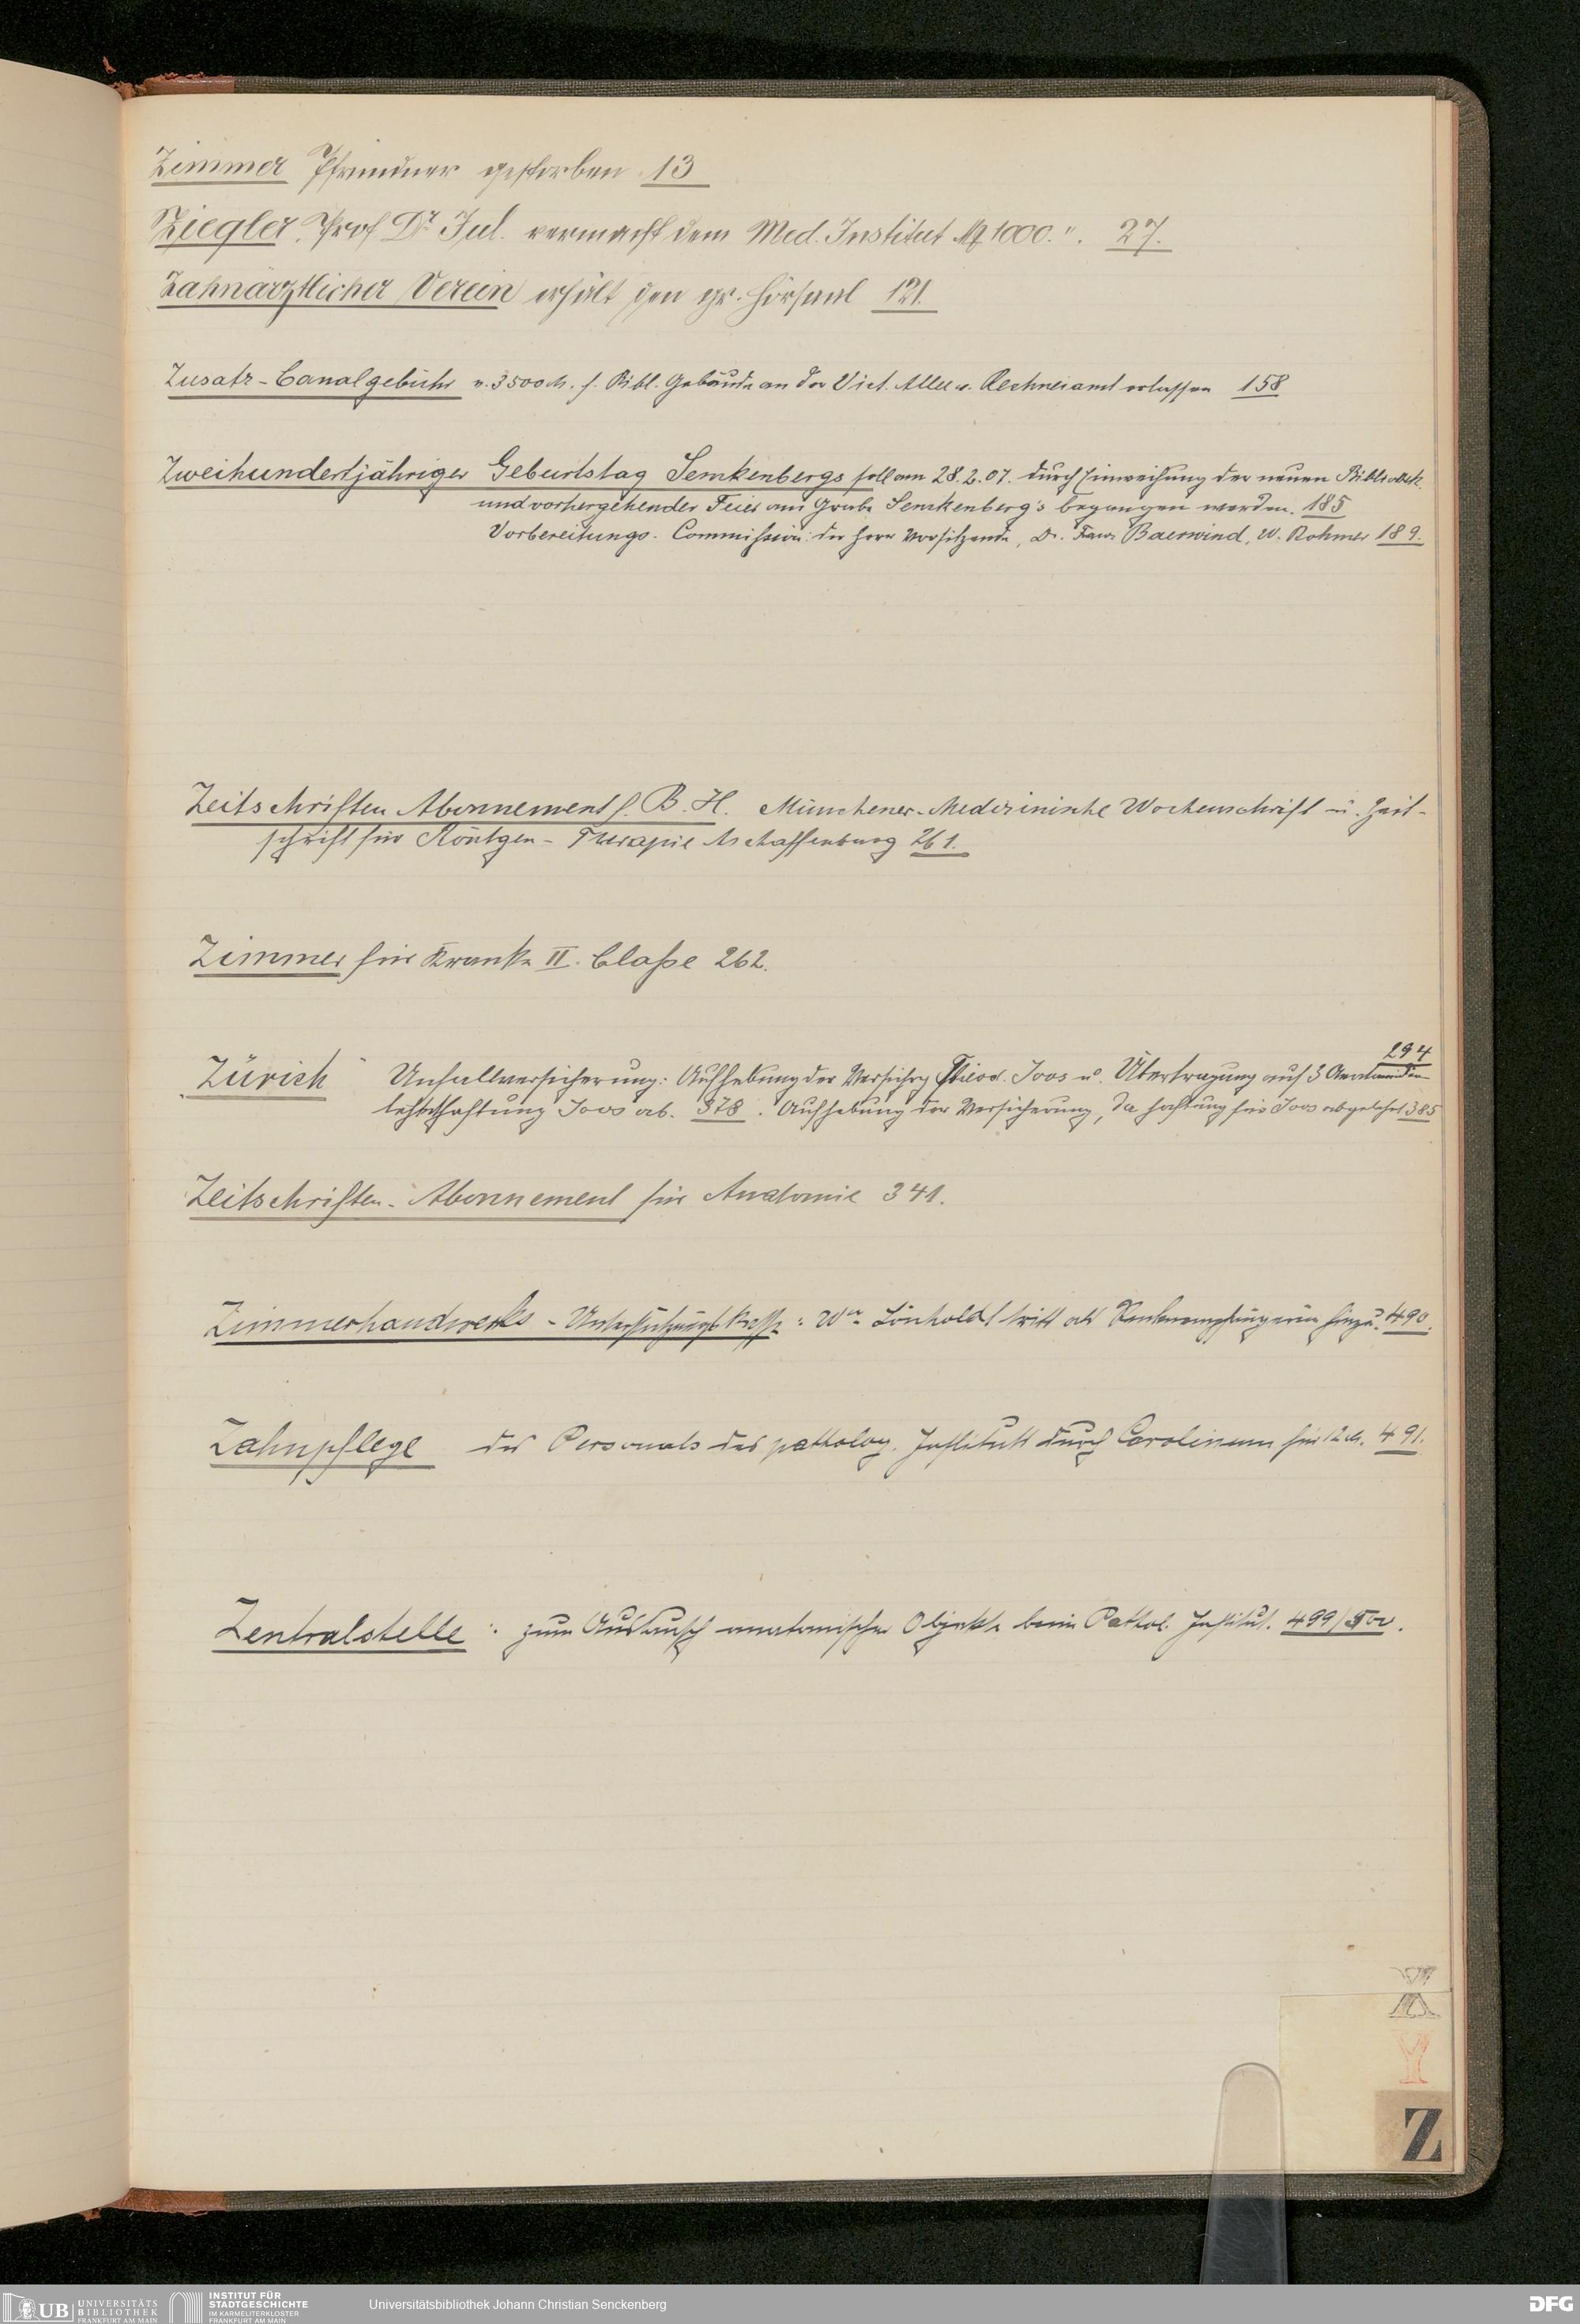 Zimmer Pfründner gestorben 13
Ziegler, Prof Dr. Jul. vermacht dem Med. Institut M 1000.". 27.
Zahnärztlicher Verein erhält den gr. Hörsaal 121.
Zusatz-Canalgebühr v. 3500 M. f. Bibl. Gebäude an der Vict. Allee v. Rechneiamt erlassen 158
Zweihundertjähriger Geburtstag Senckenbergs soll am 28.2.07. durch Einweihung der neuen Bibliothek
und vorhergehender Feier am Grabe Senckenberg's begangen werden. 185
Vorbereitungs-Commission: der Herr Vorsitzende, Dr. Franz Baerwind, W. Rohmer 189.
Zeitschriften Abonnement f. B. H. Münchener Medizinische Wochenschrift u. Zeit-
schrift für Röntgen-Therapie Aschaffenburg 261.
Zimmer für Kranke II. Classe 262.
294
Zürich Unfallversicherung: Aufhebung der Versichrg Theod. Joos u. Übertragung auf 3
lehnt Haftung Joos ab. 378. Aufhebung der Versicherung, da Haftung für Joos abgelehnt 385
Zeitschriften-Abonnement für Anatomie 341.
Zimmerhandwerks-Unterstützungskasse: Wwe Lönholdt tritt als Rentenempfängerin hinzu. 490.
Zahnpflege des Personals des patholog. Instituts durch Carolinum für 12 M. 491.
Zentralstelle: zum Austausch anatomischer Objekte beim Pathol. Institut. 499/500.
Z
UB UNIVERSITÄTS
BIBLIOTHEK
FRANKFURT AM MAIN
INSTITUT FÜR
STADTGESCHICHTE
IM KARMELITERKLOSTER
FRANKFURT AM MAIN
Universitätsbibliothek Johann Christian Senckenberg
DFG